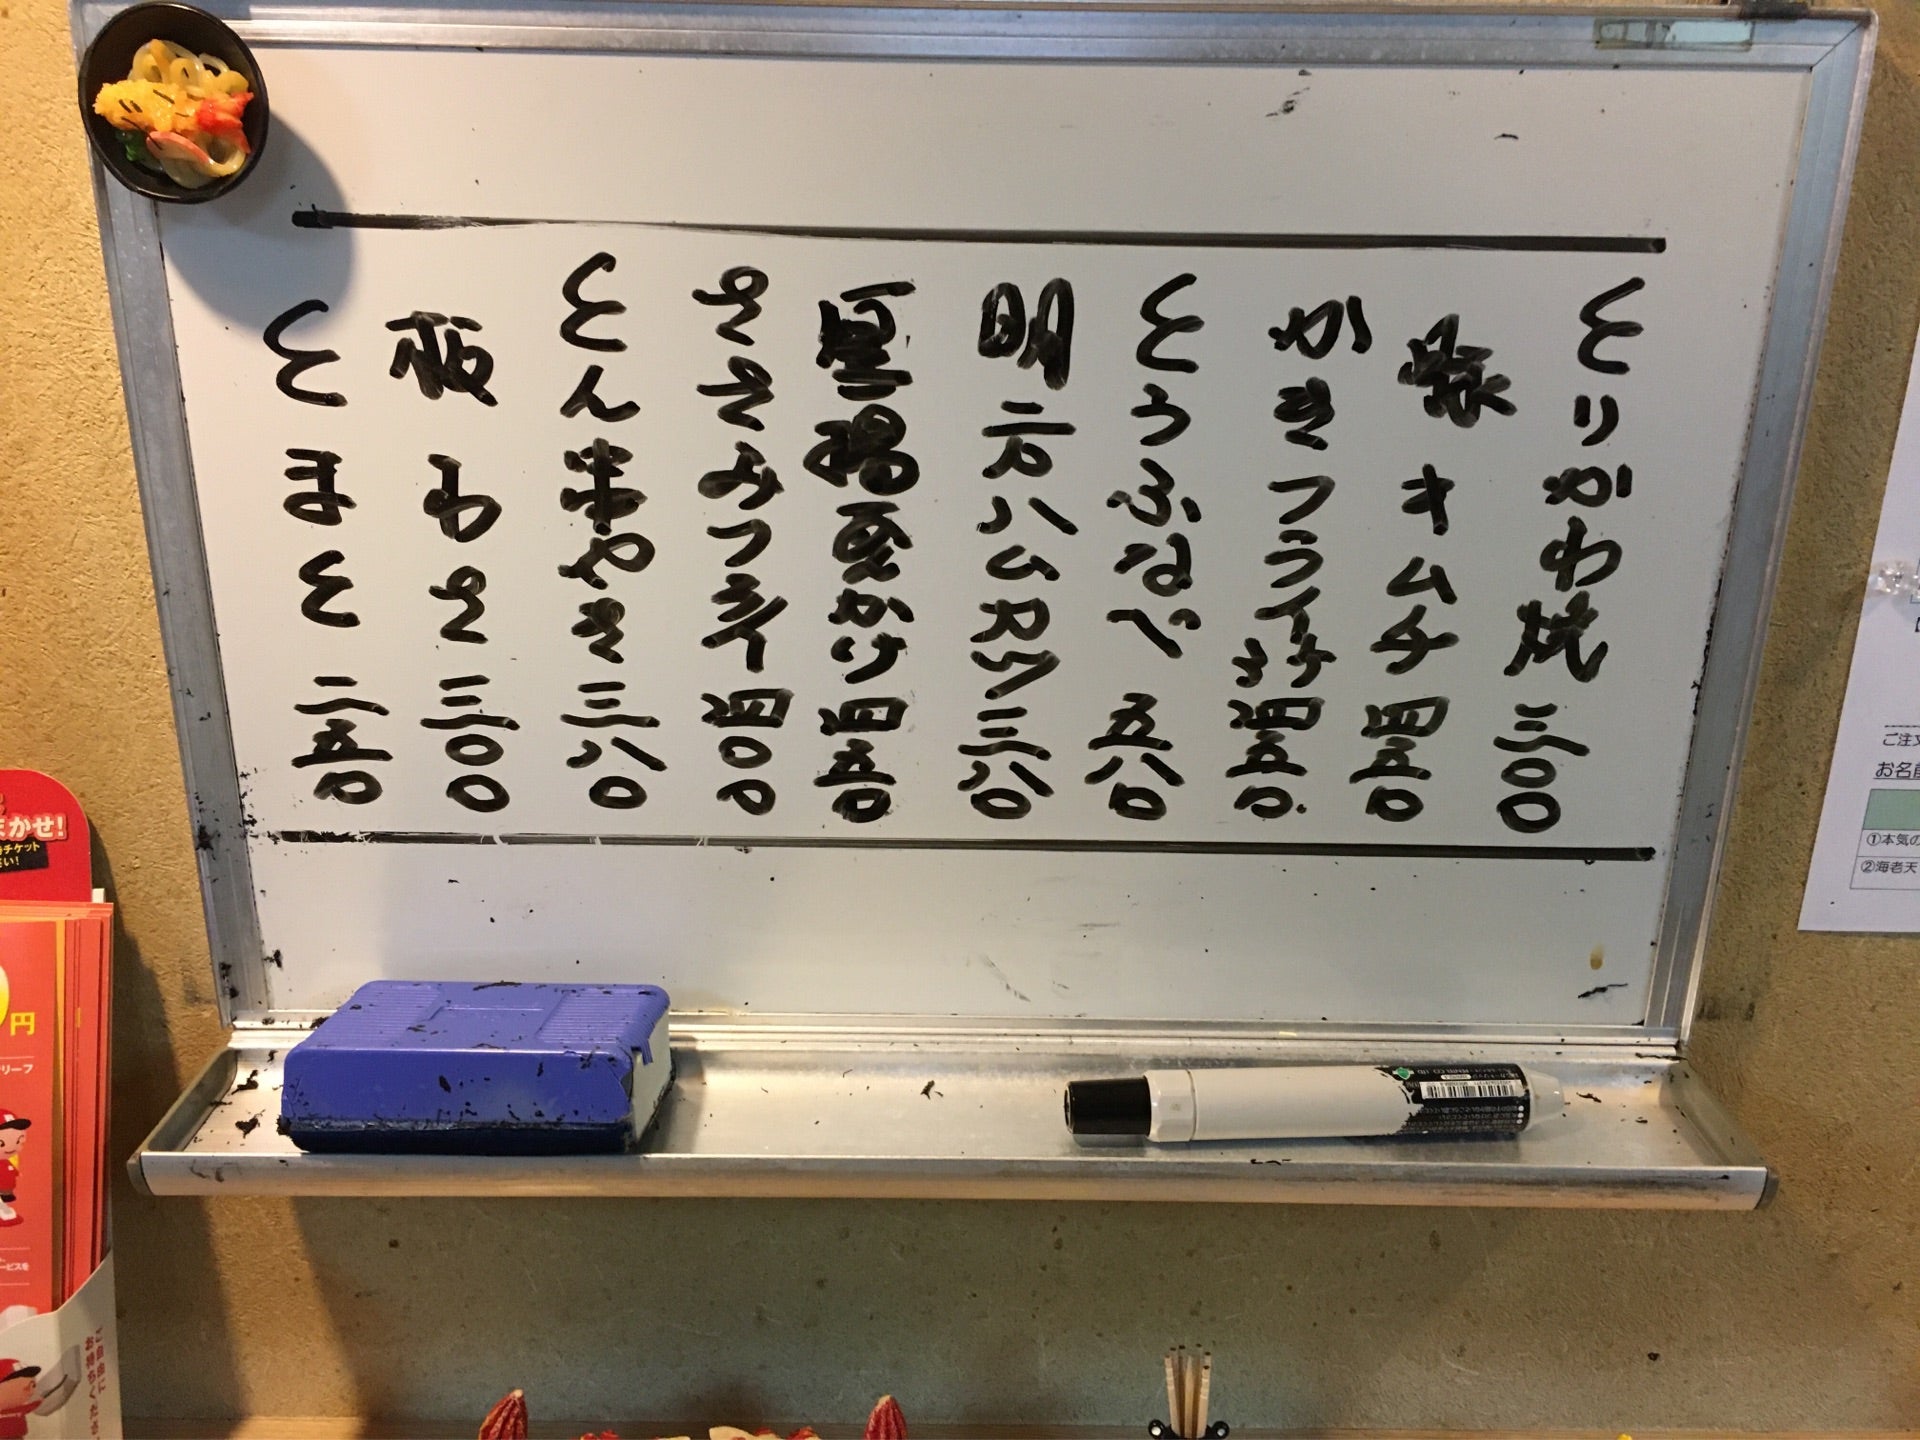 とりかわ焼 三〇〇
豚キムチ 四五〇
かきフライ 四五〇
とうふなべ 五八〇
明太ハムカツ 三八〇
厚揚あんかけ 四五〇
ささみフライ 四〇〇
とん平やき 三八〇
板わさ 三〇〇
とまと 二五〇
まかせ!
円
ご注文
お名前
①本気の
②海老天